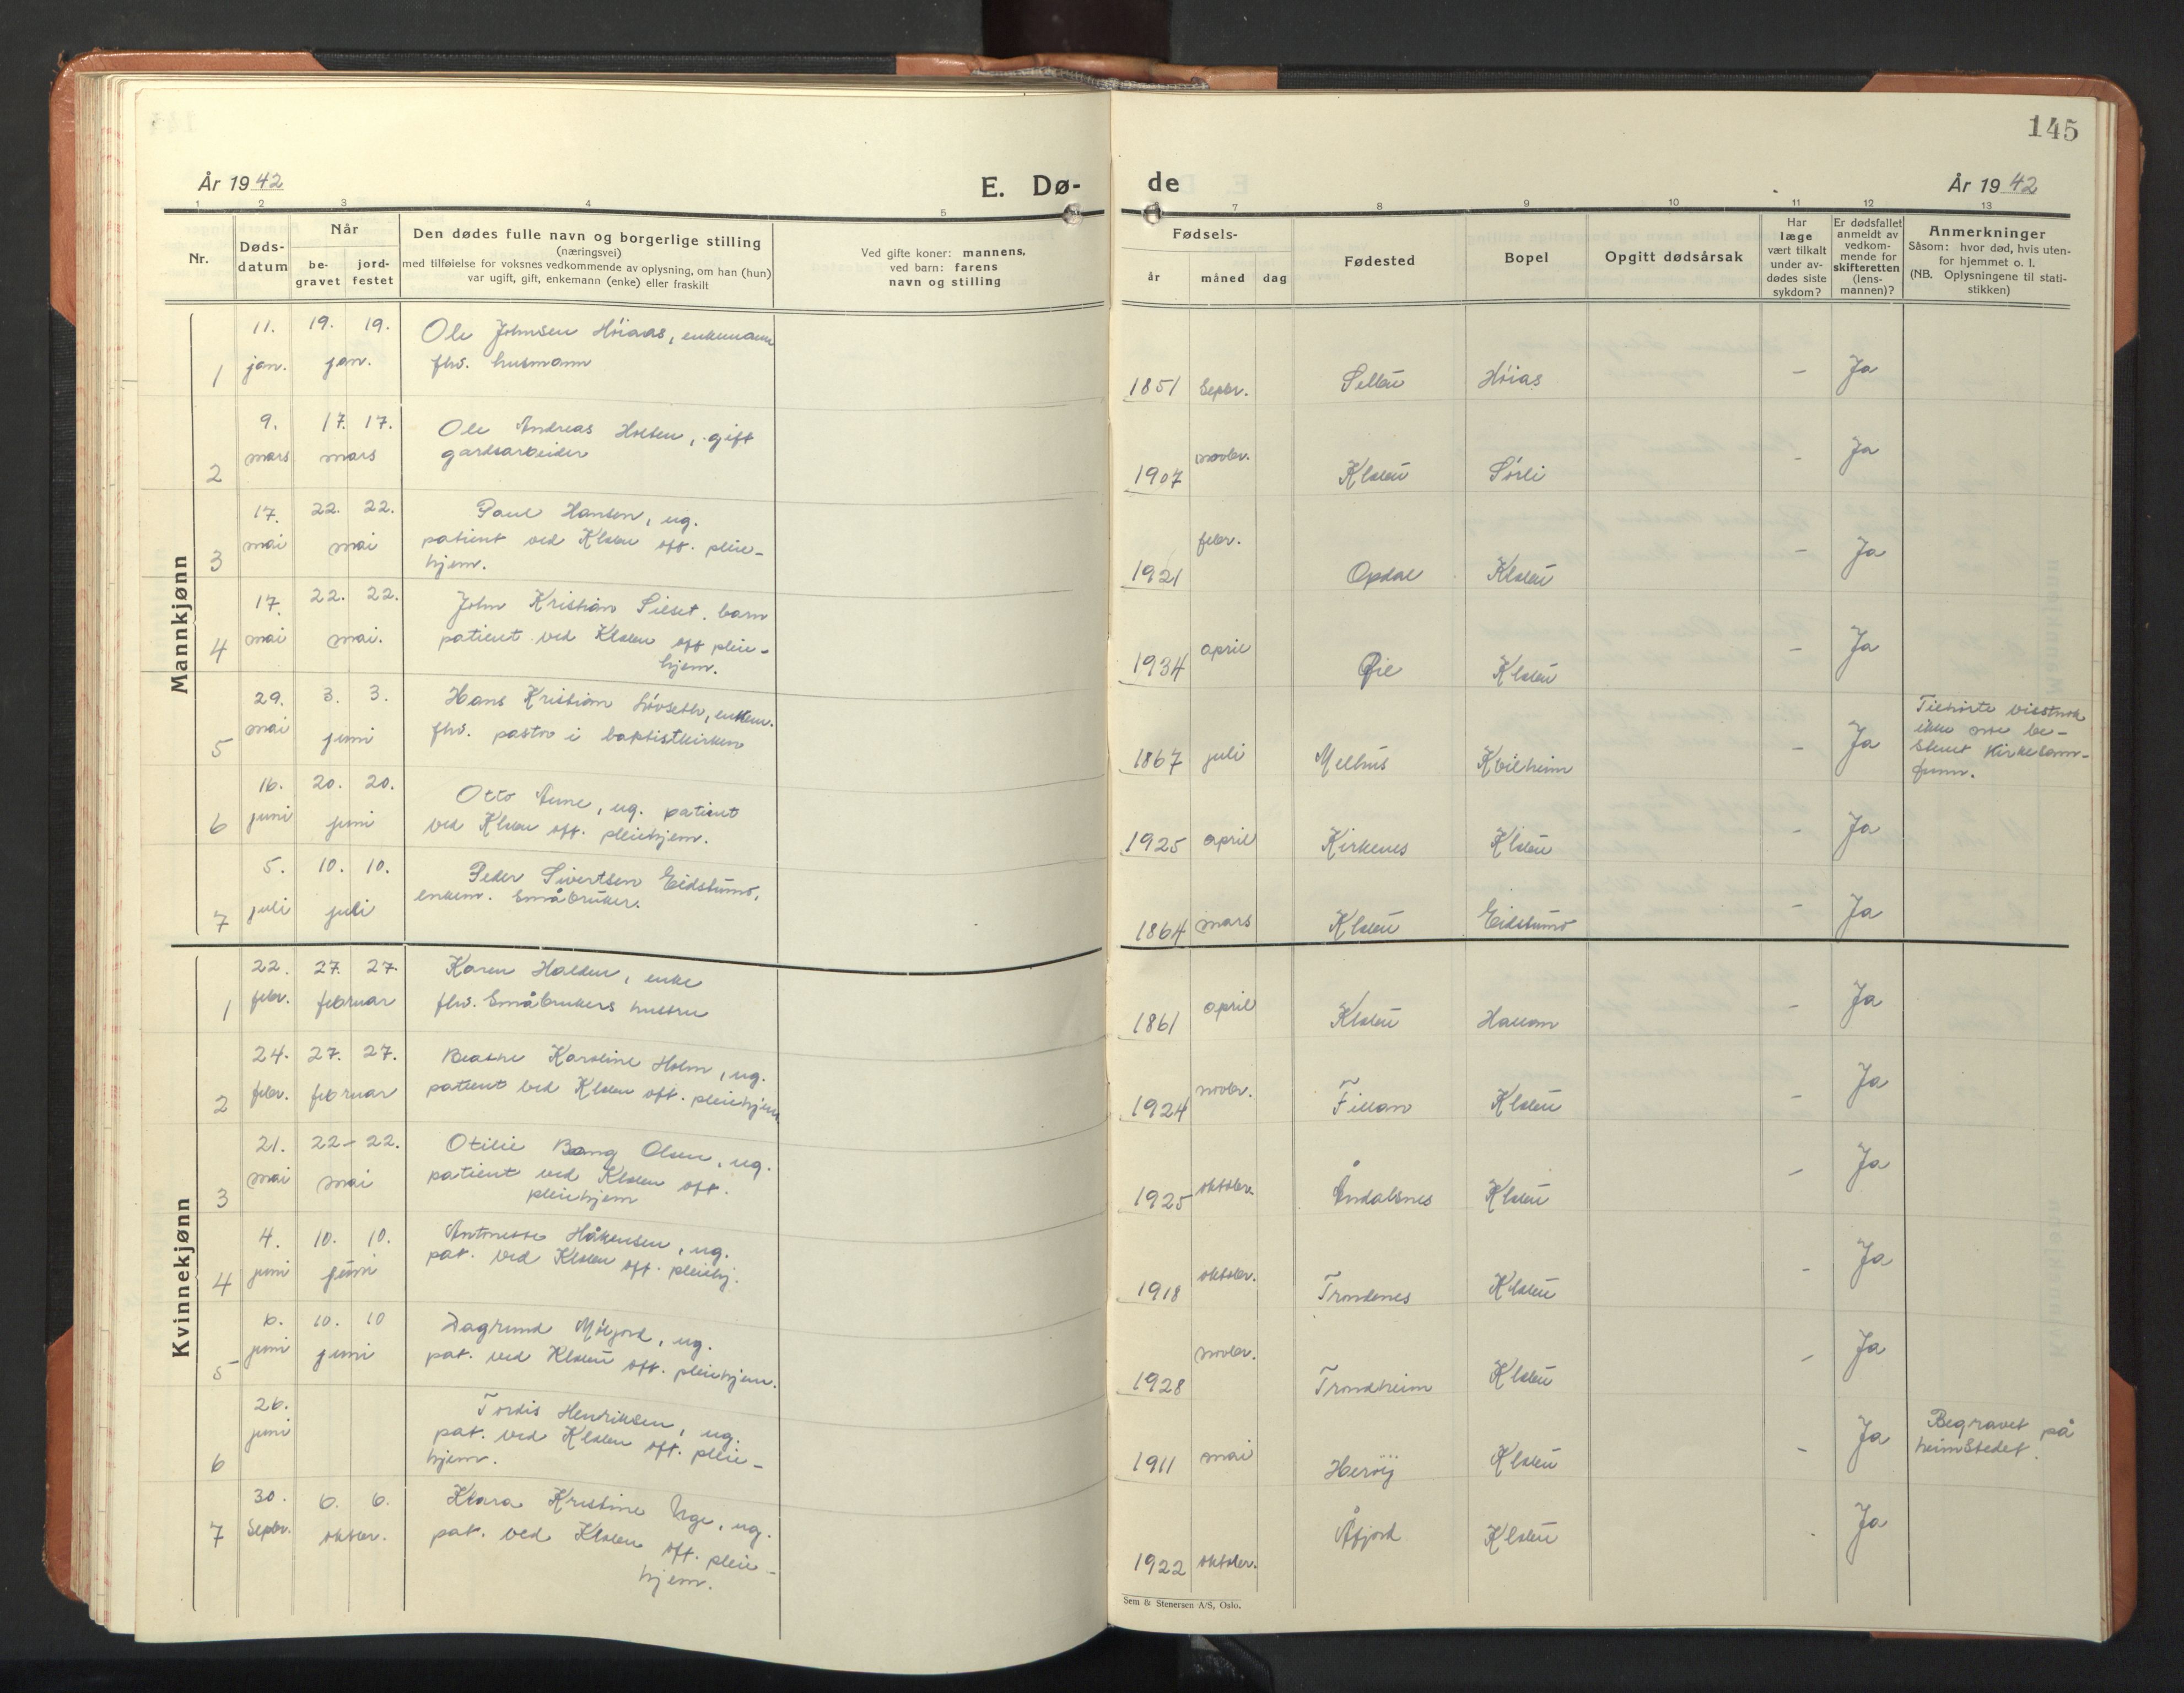 145
År 1942
E. Dø-
de
År 1942
1 2 3 4 5
7 8 9 10 11 12 13
Nr.
Døds-
datum
Når
be-
gravet
jord-
festet
Den dødes fulle navn og borgerlige stilling
(næringsvei)
med tilføielse for voksnes vedkommende av oplysning, om han (hun)
var ugift, gift, enkemann (enke) eller fraskilt
Ved gifte koner: mannens,
ved barn: farens
navn og stilling
Fødsels-
år måned dag
Fødested
Bopel
Opgitt dødsårsak
Har
læge
vært tilkalt
under av-
dødes siste
sykdom?
Er dødsfallet
anmeldt av
vedkom-
mende for
skifteretten
(lens-
mannen)?
Anmerkninger
Såsom: hvor død, hvis uten-
for hjemmet o. l.
(NB. Oplysningene til stati-
stikken)
Mannkjønn
11. 19. 19. Ole Johnsen Høiaas, enkemann
1 jan. jan. fhv. husmann
1851 Septbr. Selbu Høias - Ja
9. 17. 17. Ole Andreas Holten, gift
2 mars mars gardsarbeider
1907 novbr. Klæbu Sørli - Ja
17. 22. 22. Paul Hansen, ug.
3 mai mai patient ved Klæbu off. pleie-
hjem.
1921 febr. Opdal Klæbu - Ja
17. 22. 22. John Kristian Silset. barn
4 mai mai. patient ved Klæbu off pleie-
hjem.
1934 april Øie Klæbu - Ja
29. 3. 3. Hans Kristian Løvseth, enkem.
5 mai juni fhv. pastor i baptistkirken
1867 juli Melhus Kvilheim - Ja
Tilhørte visstnok
ikke noe be-
stemt kirkesam-
funn.
16. 20. 20. Otto Aune, ug. patient
6 juni juni ved Klæbu off. pleiehjem.
1925 april Kirkenes Klæbu - Ja
5. 10. 10. Peder Sivertsen Eidstumo,
7 juli juli enkem. Småbruker.
1864 mars Klæbu Eidstumo - Ja
Kvinnekjønn
22. 27. 27. Karen Halden, enke
1 febr. februar fhv. Småbrukers hustru
1861 april Klæbu - Ja
24. 27. 27. Beathe Karoline Holm, ug.
2 febr. februar patient ved Klæbu off. pleiehjem
1924 novbr. Fillan Klæbu - Ja
21. 22- 22. Otilie Bang Olsen, ug.
3 mai mai patient ved Klæbu off.
pleiehjem
1925 oktober. Åndalsnes Klæbu - Ja
4. 10. 10. Antonette Håkensen, ug.
4 juni juni pat. ved Klæbu off. pleiehj.
1918 oktober. Trondenes Klæbu - Ja
6. 10. 10 Dagrund, ug.
5 juni juni pat. ved Klæbu off. pleiehjem.
1928 novbr. Trondheim Klæbu - Ja
26. Tordis Henriksen, ug.
juni pat. ved Klæbu off. pleie-
6 hjem.
1911 mai Herøy Klæbu - Ja
Begravet på
heimstedet.
30. 6. 6. Klara Kristine, ug.
7 Septbr. oktober. pat. ved Klæbu off. pleie-
hjem.
1922 oktober. Åfjord Klæbu - Ja
Sem & Stenersen A/S, Oslo.